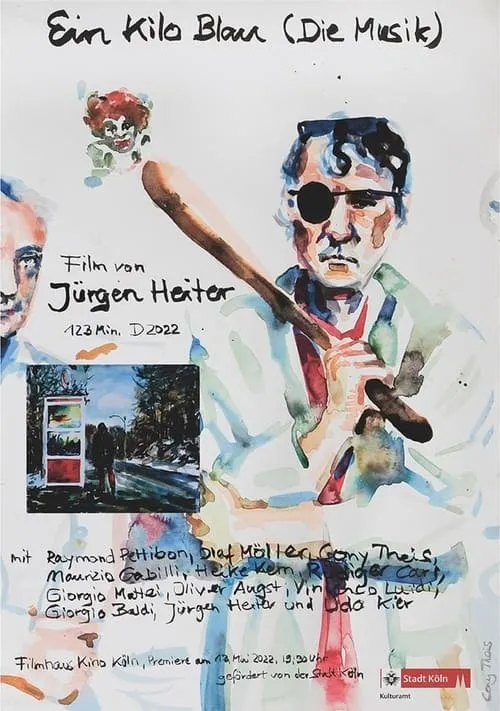 Ein Kilo Blau (Die Musik)
Film von
Jürgen Heiter
123 Min. D 2022
mit Raymond Pettibon, Olaf Möller, Cony Theis,
Maurizio Gabilli, Heike Kern, Rüdiger Carl,
Giorgio Mattei, Oliver Augst, Vincenzo Luidi,
Giorgio Baldi, Jürgen Heiter und Udo Kier
Filmhaus Kino Köln, Premiere am 13. Mai 2022, 19:30 Uhr
gefördert von der Stadt Köln
Stadt Köln
Kulturamt
Cony Theis